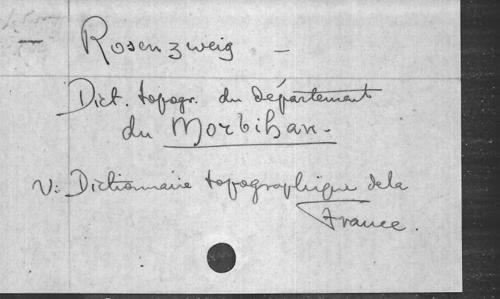 Rosenzweig —
Dict. topogr. du département
du Morbihan.
V: Dictionnaire topographique de la
France.